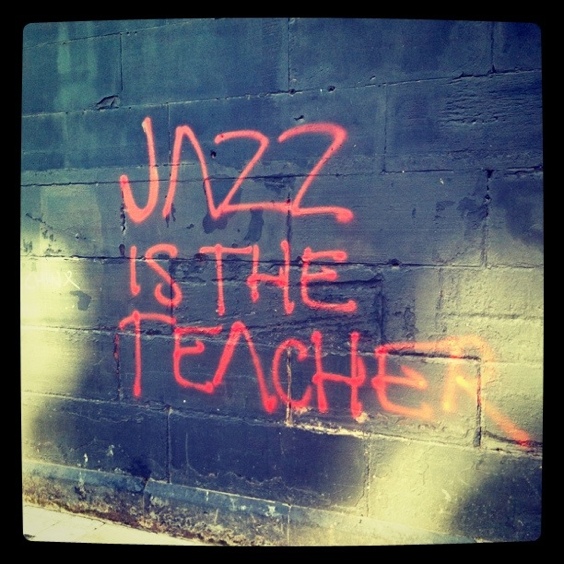 JAZZ
IS THE
TEACHER